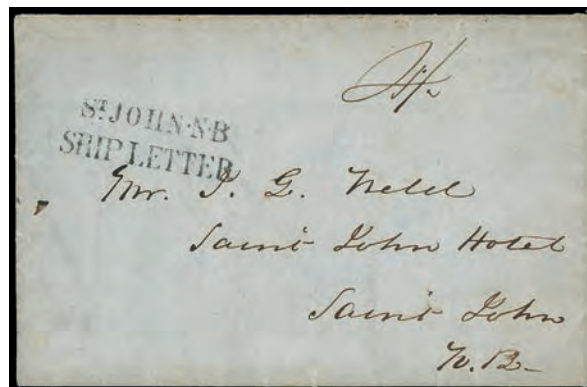 Sᵀ JOHN·N·B
SHIP LETTER
Mr. G.
Saint John Hotel
Saint John
N.B.